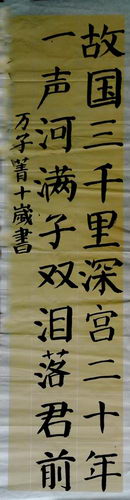 故国三千里深宫二十年
一声河满子双泪落君前
万子菁十歲書